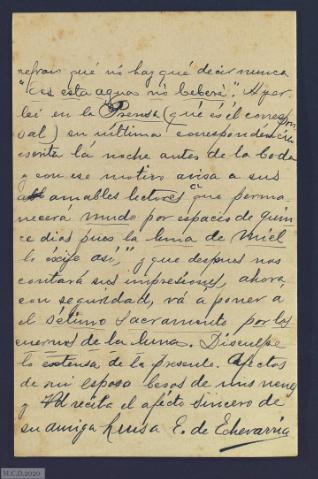 refran qué nó hay qué decir nunca
"de esta agua nó beberé". Ayer
lei en la Prensa (qué és él corres pon
sal) su última correspondencia
escrita lá noche antes de la boda
y con ese motivo avisa a sus
amables lectores "que perma
necerá mudo por espacio de quin
ce dias pues la luna de miel
lo exije asi," y que despues nos
contará sus impresiones, ahora,
con seguridad, vá a poner á
el sétimo sacramento por los
cuernos de la luna. Disculpe
lo extensa de la presente. Afectos
de mi esposo besos de mis nenes
y Vd reciba el afecto sincero de
su amiga Luisa E. de Echevarria
M.C.D.2020